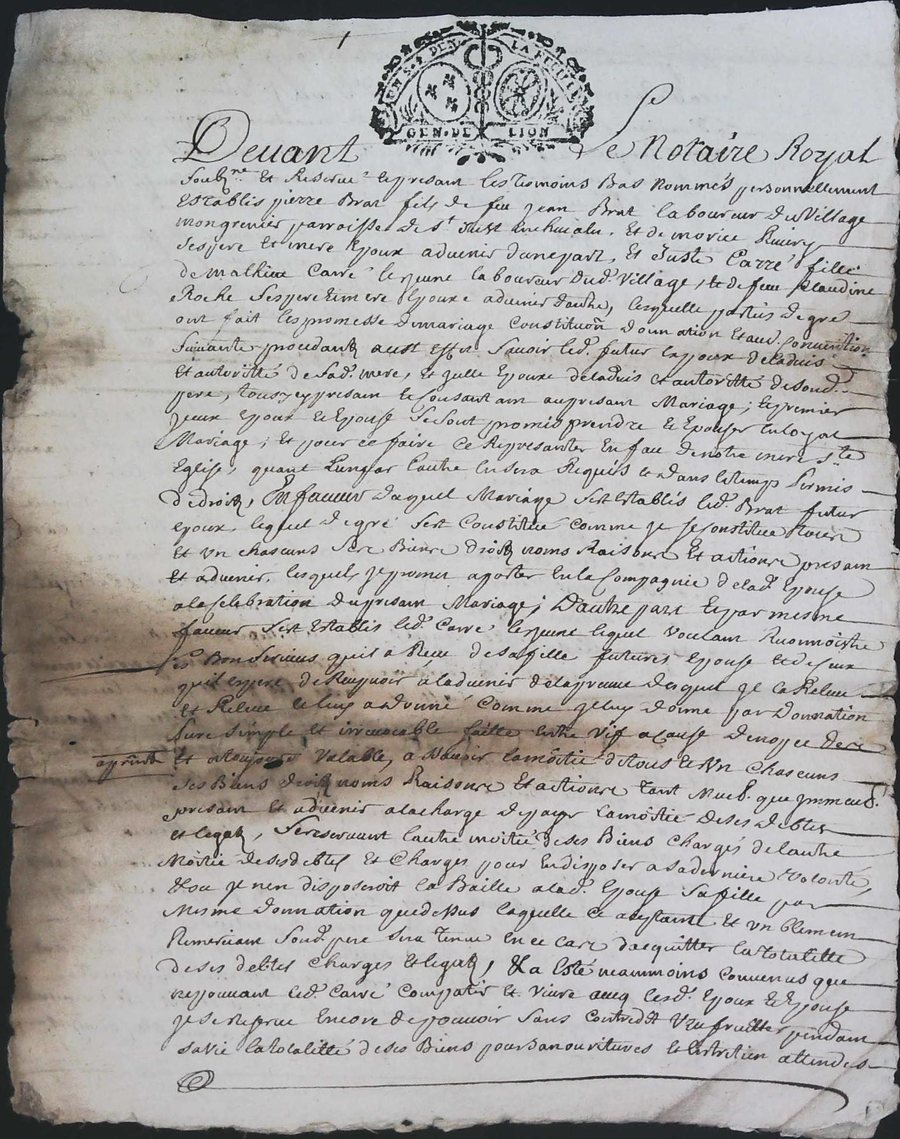 UN S. 4 DEN. LA FEUILLE
GEN. DE LION
Devant Le Notaire Royal
Soubne. et Reservé et presant les tesmoins Bas nommés personnellement
Establis pierre Brat fils de feu Jean Brat laboureur du Village
mongrenier parroisse de st. Just et de
ses pere et mere Epoux advenir d'unepart, et Juste Carré fille
de mathieu Carré lejeune laboureur dud. Village, et de feu Claudine
Roche ses pere et mere Epouxe advenir d'autre, lesquelle parties de gré
ont fait les promesse de mariage Constituõn donnation et aud. Convention
Suivante Savoir led. futur Epoux de l'advis
et autoritté de Sad. mere, et ycelle Epouxe de l'advis et autoritté de sond.
pere, tous ycy presant au presant Mariage; le premier
yceux Epoux et Epouse se sont promis prendre et Epouser en loyal
Mariage; et pour ce faire ce Represanter en fau de notre mere ste.
Eglise, quant l'un par l'autre en sera Requis et dans le temps permis
de droit, En faveur duquel Mariage s'est establis led. Brat futur
epoux, lequel de gré s'est Constitué comme ye se constitue
et un chascuns ses Biens droitz noms Raisons et actions presant
et advenir, lesquels ye promet aporter en la Compagnie de lad. Epouse
a la celebration du presant Mariage; D'autre part et par mesme
faveur s'est establis led. Carré lejeune lequel voulant Reconnoistre
les Bon Services qu'il a Reçu de sa fille future Epouse et de ceux
qu'il espere de Recepvoir a l'advenir de la preuve desquel ye la Releve
et Releve luy a donné Comme ye luy donne par Donnation
pure simple et irrevocable faitte entre vif a cause de nopce
et valable, a savoir la moitié de tous et un chascuns
aprouvé
ses Biens droitz noms Raisons et actions tant Meub. que ymmeub.
presant et advenir a la charge de payer la moitié de ses debtes
et legatz, se reservant l'autre moitié de ses Biens charges de l'autre
Moitié de ses debtes et Charges pour en disposer a sa derniere volonté,
et ou ye n'en disposeroit la Baille a lad. Epouse sa fille par
Mesme donnation que dessus laquelle ce aceptante et umblement
Remerciant Sond. pere sera tenue en ce cas d'acquitter la totalitté
de ses debtes Charges et legatz, et a Esté neanmoins convenus que
ne pouvant led. Carré Compatir et vivre avecq lesd. Epoux et Epouse
ye se reserve encore de pouvoir sans contredit usufruitter pendant
sa vie la totalitté de ses Biens pour sa nouritures et entretien attendes